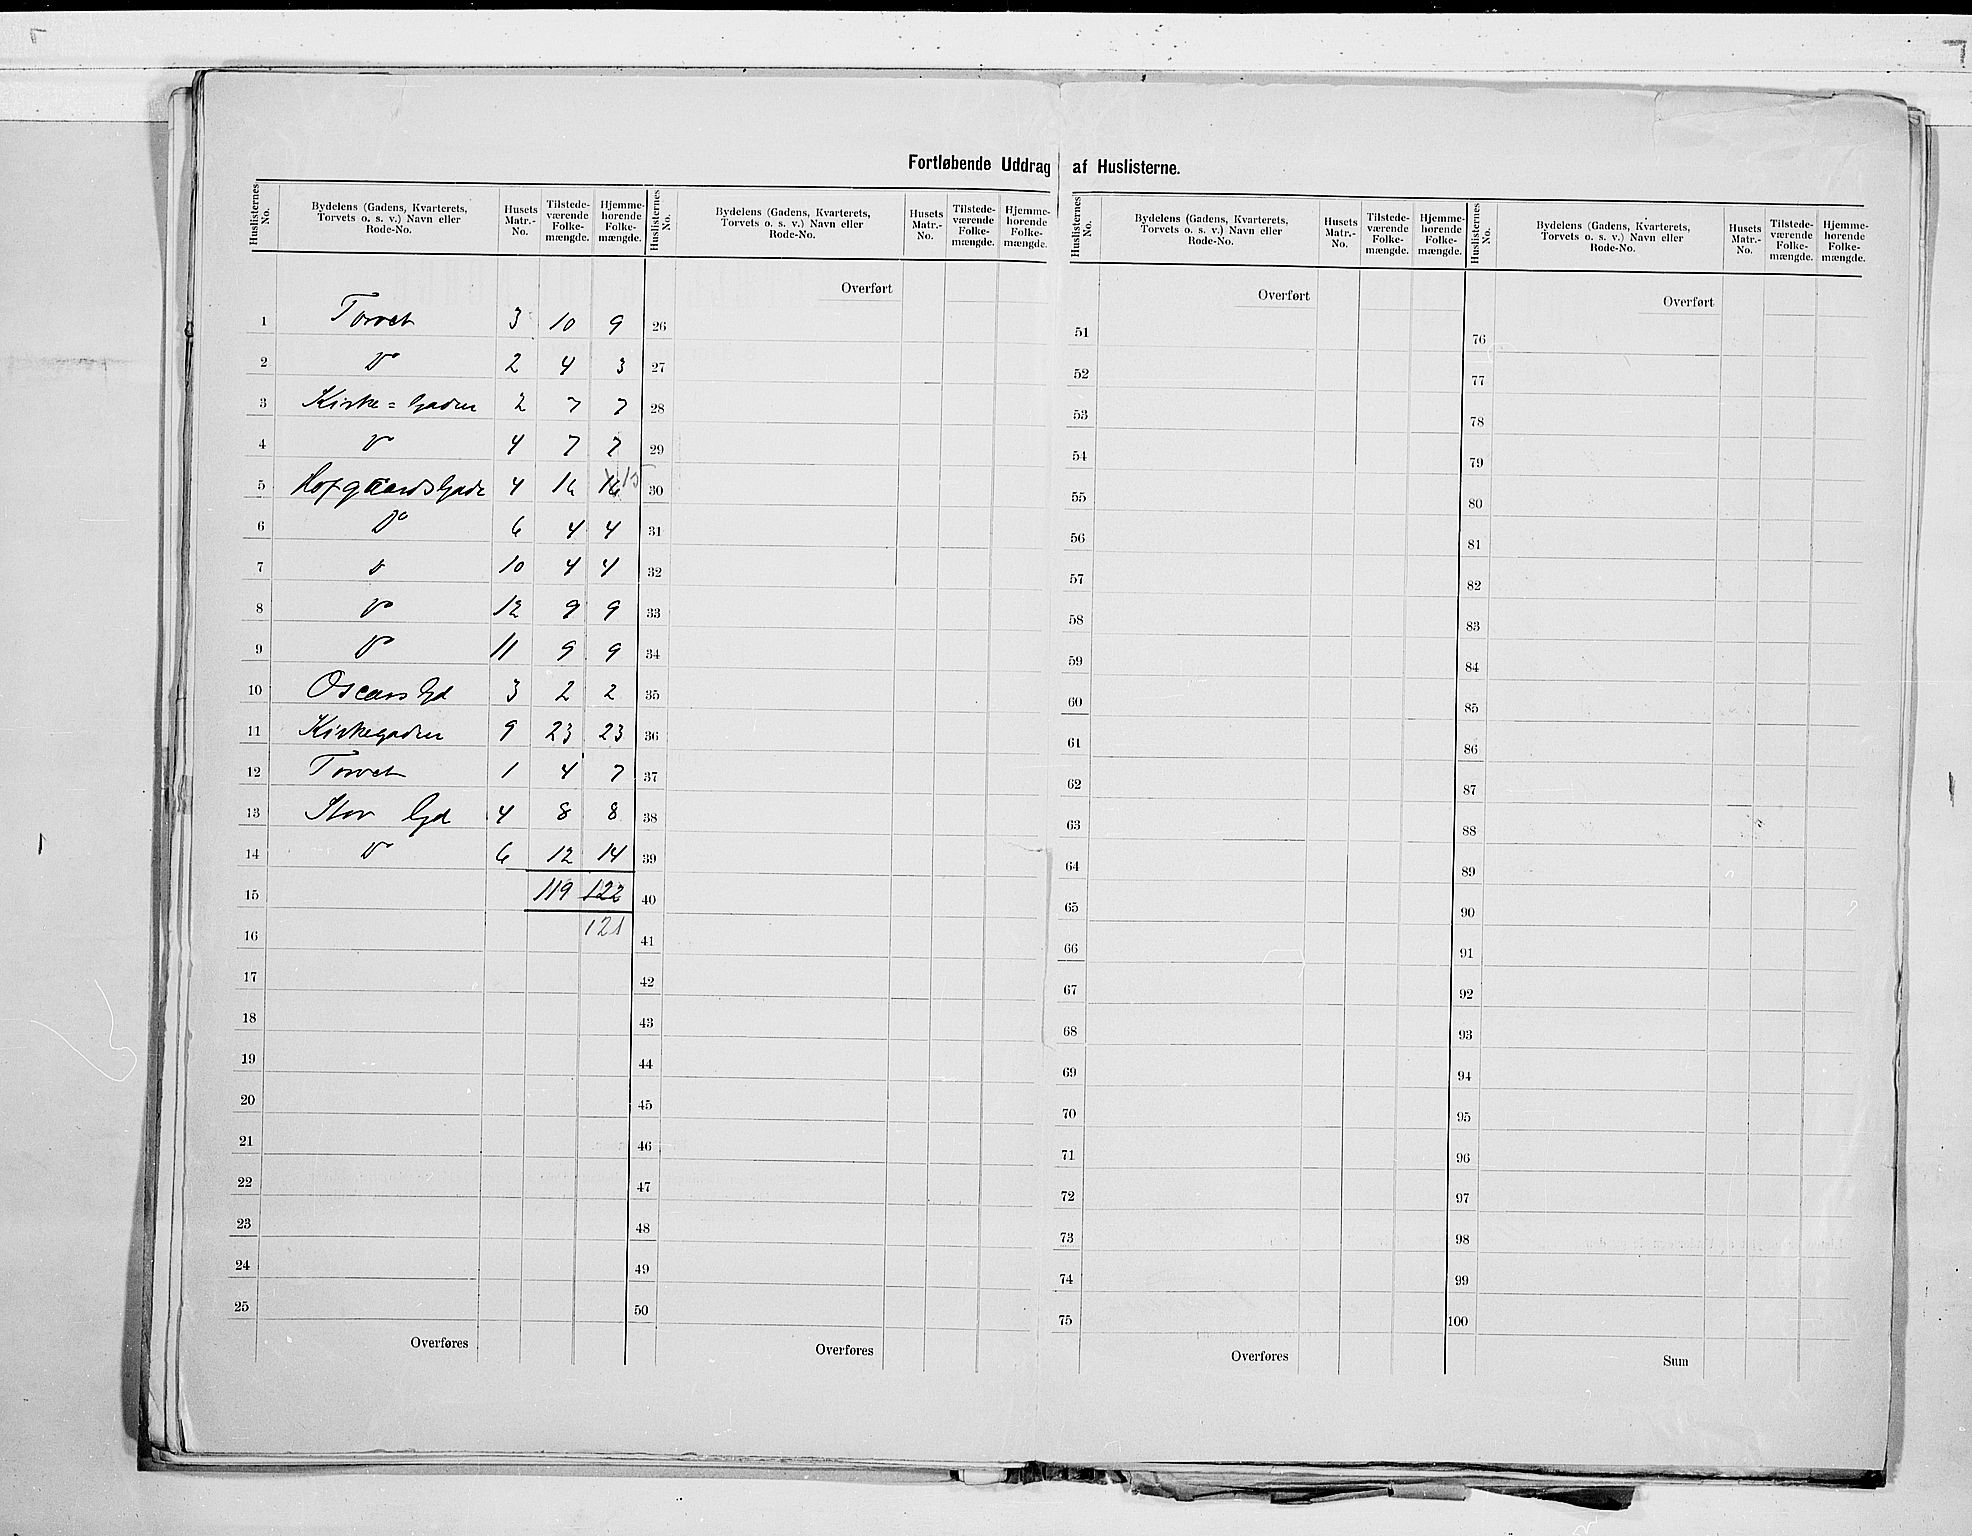 Fortløbende Uddrag af Huslisterne.
Huslisternes No. | Bydelens (Gadens, Kvarterets, Torvets o. s. v.) Navn eller Rode-No. | Husets Matr.-No. | Tilstedeværende Folkemængde. | Hjemmehørende Folkemængde.
1 Torvet 3 10 9
2 Do 2 4 3
3 Kirke=Gaden 2 7 7
4 Do 4 7 7
5 HofgaardsGade 4 16 16 15
6 Do 6 4 4
7 Do 10 4 4
8 Do 12 9 9
9 Do 11 9 9
10 Oscars Gd 3 2 2
11 Kirkegaden 9 23 23
12 Torvet 1 4 7
13 Stor Gd 4 8 8
14 Do 6 12 14
15 119 122
16 121
17
18
19
20
21
22
23
24
25
Overføres
Huslisternes No. | Bydelens (Gadens, Kvarterets, Torvets o. s. v.) Navn eller Rode-No. | Husets Matr.-No. | Tilstedeværende Folkemængde. | Hjemmehørende Folkemængde.
Overført
26
27
28
29
30
31
32
33
34
35
36
37
38
39
40
41
42
43
44
45
46
47
48
49
50
Overføres
Huslisternes No. | Bydelens (Gadens, Kvarterets, Torvets o. s. v.) Navn eller Rode-No. | Husets Matr.-No. | Tilstedeværende Folkemængde. | Hjemmehørende Folkemængde.
Overført
51
52
53
54
55
56
57
58
59
60
61
62
63
64
65
66
67
68
69
70
71
72
73
74
75
Overføres
Huslisternes No. | Bydelens (Gadens, Kvarterets, Torvets o. s. v.) Navn eller Rode-No. | Husets Matr.-No. | Tilstedeværende Folkemængde. | Hjemmehørende Folkemængde.
Overført
76
77
78
79
80
81
82
83
84
85
86
87
88
89
90
91
92
93
94
95
96
97
98
99
100
Sum